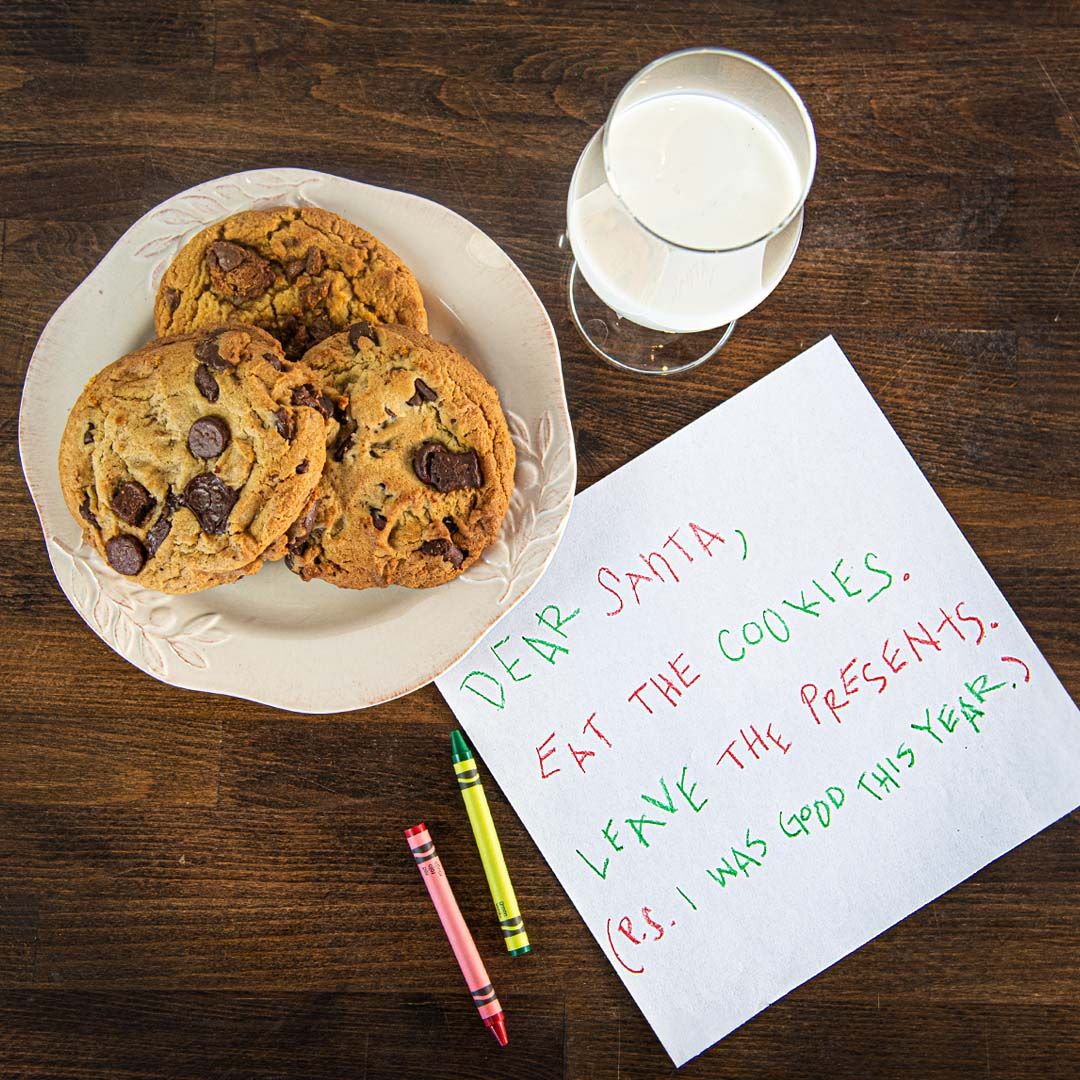 DEAR SANTA,
EAT THE COOKIES.
LEAVE THE PRESENTS.
(P.S. I WAS GOOD THIS YEAR.)